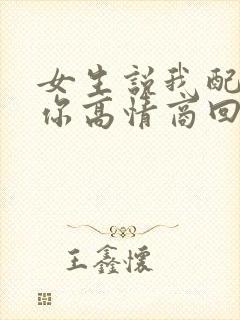 女生说我配
你高情商回
王鑫懷